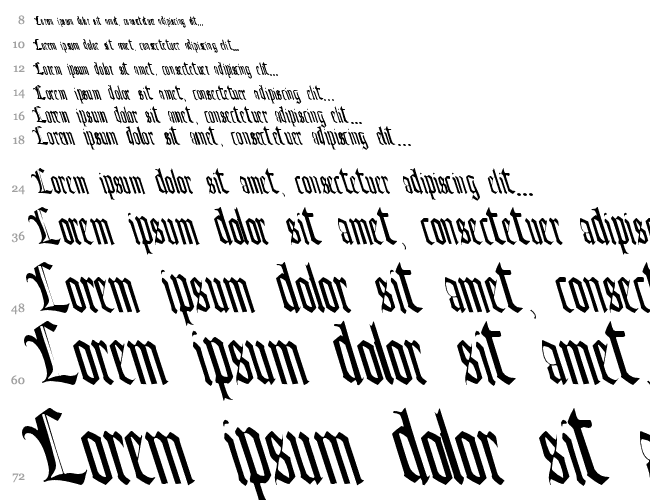 8 Lorem ipsum dolor sit amet, consectetuer adipiscing elit...
10 Lorem ipsum dolor sit amet, consectetuer adipiscing elit...
12 Lorem ipsum dolor sit amet, consectetuer adipiscing elit...
14 Lorem ipsum dolor sit amet, consectetuer adipiscing elit...
16 Lorem ipsum dolor sit amet, consectetuer adipiscing elit...
18 Lorem ipsum dolor sit amet, consectetuer adipiscing elit...
24 Lorem ipsum dolor sit amet, consectetuer adipiscing elit...
36 Lorem ipsum dolor sit amet, consectetuer adipisc
48 Lorem ipsum dolor sit amet, consect
60 Lorem ipsum dolor sit amet,
72 Lorem ipsum dolor sit